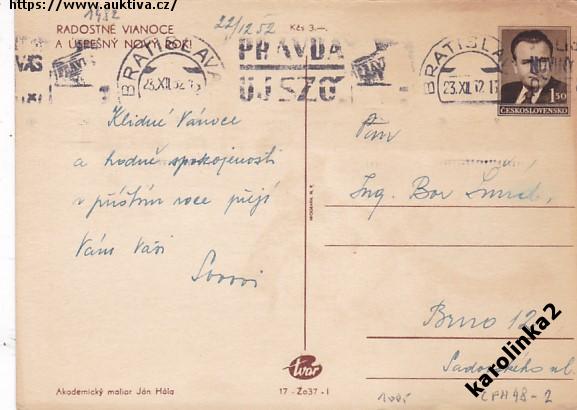 https://www.auktiva.cz/
1952
22/12 52
RADOSTNÉ VIANOCE
A ÚSPEŠNÝ NOVÝ ROK!
Kčs 3.—
BRATISLAVA
23.XII.52
PRAVDA
ÚJ SZÓ
BRATISLAVA
23.XII.52
NOVINY
1,50
ČESKOSLOVENSKO
Klidné Vánoce
a hodně spokojenosti
v příštím roce přejí
Vám Vaši
Pan
Ing. Bor
Brno 12
Sadovského ul.
tvar
Akademický maliar Ján Hála
17 - Za37 - I
CPH48-2
karolinka2